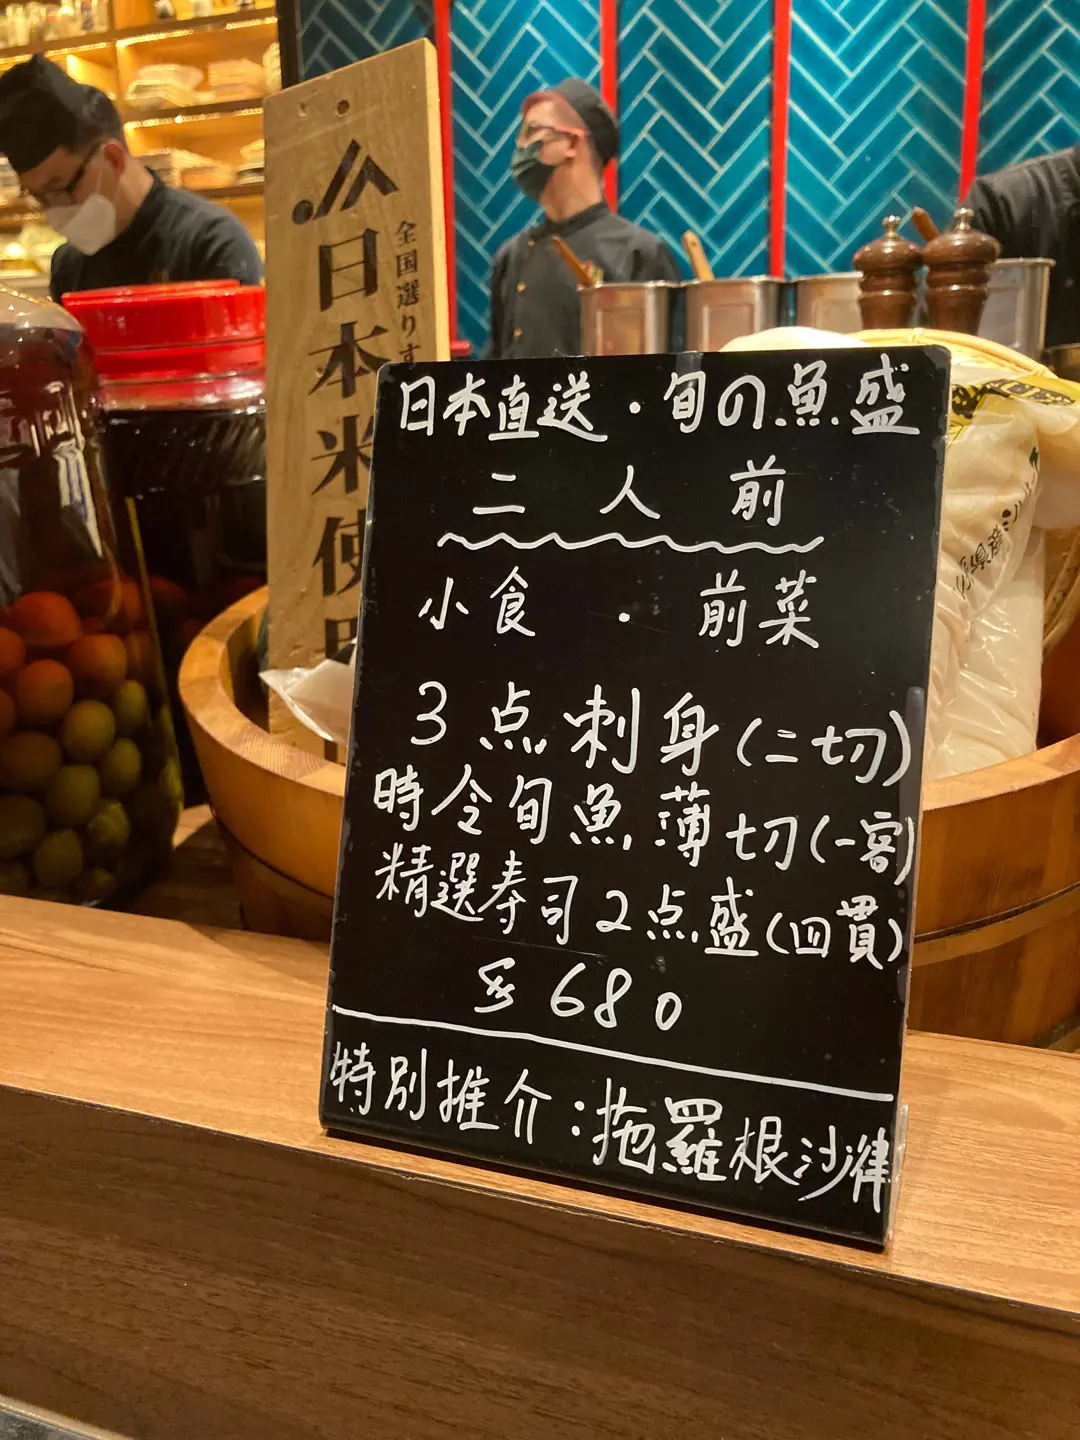 全国選りす
日本米使用
日本直送・旬の魚盛
二人前
小食・前菜
3点刺身(二切)
時令旬魚薄切(一客)
精選寿司2点盛(四貫)
$680
特別推介:拖羅根沙律